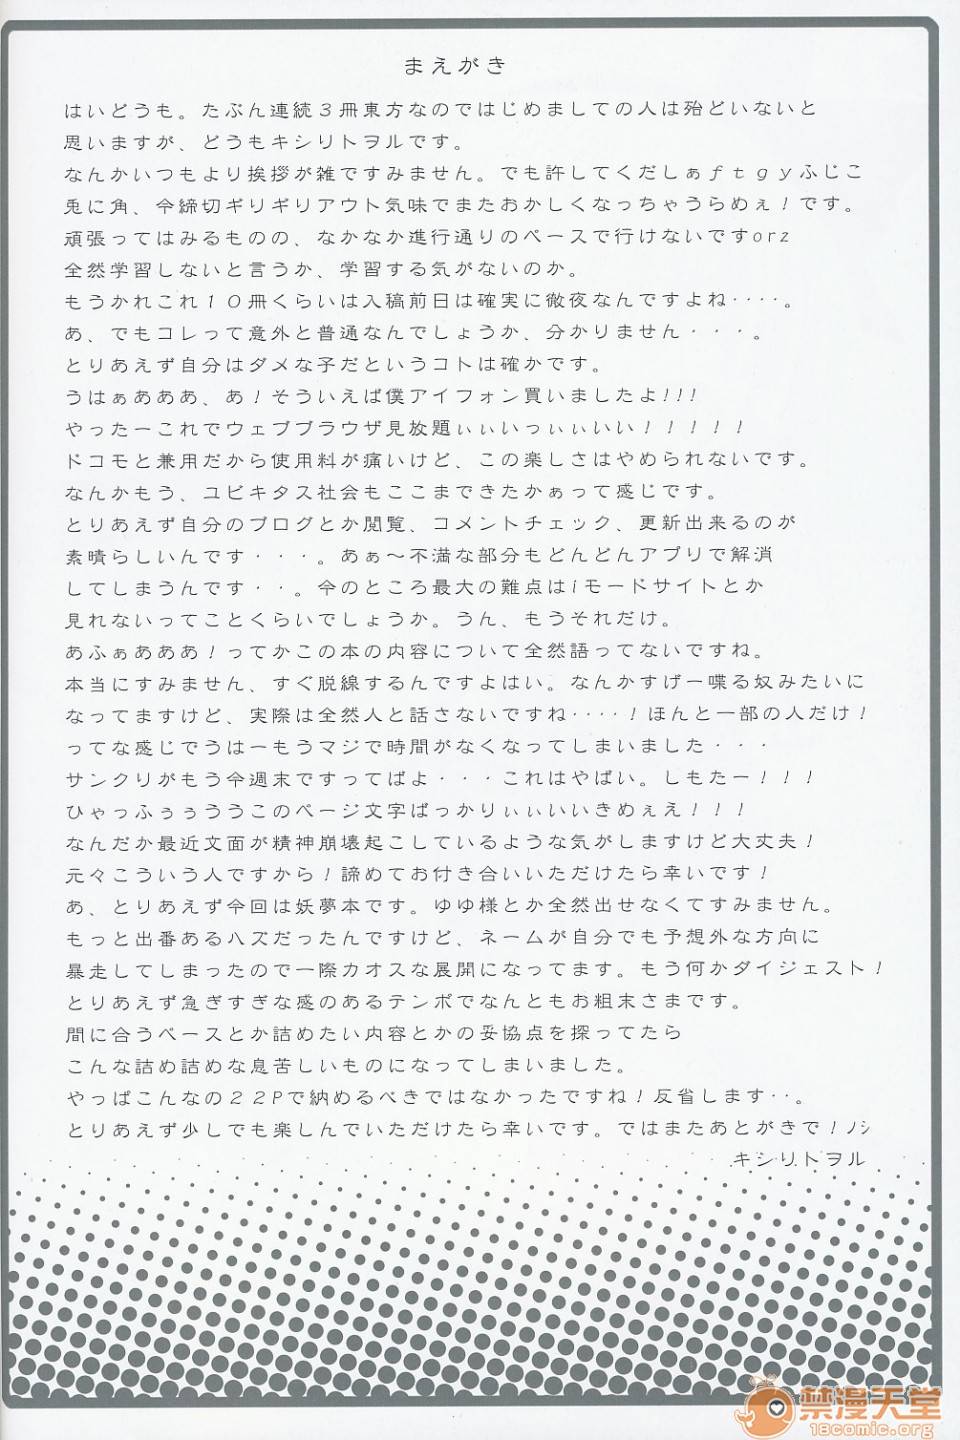 まえがき
はいどうも。たぶん連続３冊東方なのではじめましての人は殆どいないと
思いますが、どうもキシリトヲルです。
なんかいつもより挨拶が雑ですみません。でも許してくだしぁｆｔｇｙふじこ
兎に角、今締切ギリギリアウト気味でまたおかしくなっちゃうらめぇ！です。
頑張ってはみるものの、なかなか進行通りのペースで行けないですorz
全然学習しないと言うか、学習する気がないのか。
もうかれこれ１０冊くらいは入稿前日は確実に徹夜なんですよね‥‥。
あ、でもコレって意外と普通なんでしょうか、分かりません・・・。
とりあえず自分はダメな子だというコトは確かです。
うはぁあああ、あ！そういえば僕アイフォン買いましたよ!!!
やったーこれでウェブブラウザ見放題ぃぃいっぃぃいい！！！！！
ドコモと兼用だから使用料が痛いけど、この楽しさはやめられないです。
なんかもう、ユビキタス社会もここまできたかぁって感じです。
とりあえず自分のブログとか閲覧、コメントチェック、更新出来るのが
素晴らしいんです・・・。あぁ～不満な部分もどんどんアプリで解消
してしまうんです・・。今のところ最大の難点はiモードサイトとか
見れないってことくらいでしょうか。うん、もうそれだけ。
あふぁあああ！ってかこの本の内容について全然語ってないですね。
本当にすみません、すぐ脱線するんですよはい。なんかすげー喋る奴みたいに
なってますけど、実際は全然人と話さないですね‥‥！ほんと一部の人だけ！
ってな感じでうはーもうマジで時間がなくなってしまいました・・・
サンクリがもう今週末ですってばよ・・・これはやばい。しもたー！！！
ひゃっふぅぅううこのページ文字ばっかりぃぃいいきめぇえ！！！
なんだか最近文面が精神崩壊起こしているような気がしますけど大丈夫！
元々こういう人ですから！諦めてお付き合いいただけたら幸いです！
あ、とりあえず今回は妖夢本です。ゆゆ様とか全然出せなくてすみません。
もっと出番あるハズだったんですけど、ネームが自分でも予想外な方向に
暴走してしまったので一際カオスな展開になってます。もう何かダイジェスト！
とりあえず急ぎすぎな感のあるテンポでなんともお粗末さまです。
間に合うペースとか詰めたい内容とかの妥協点を探ってたら
こんな詰め詰めな息苦しいものになってしまいました。
やっぱこんなの２２Pで納めるべきではなかったですね！反省します‥。
とりあえず少しでも楽しんでいただけたら幸いです。ではまたあとがきで！ノシ
キシリトヲル
禁漫天堂
18comic.org